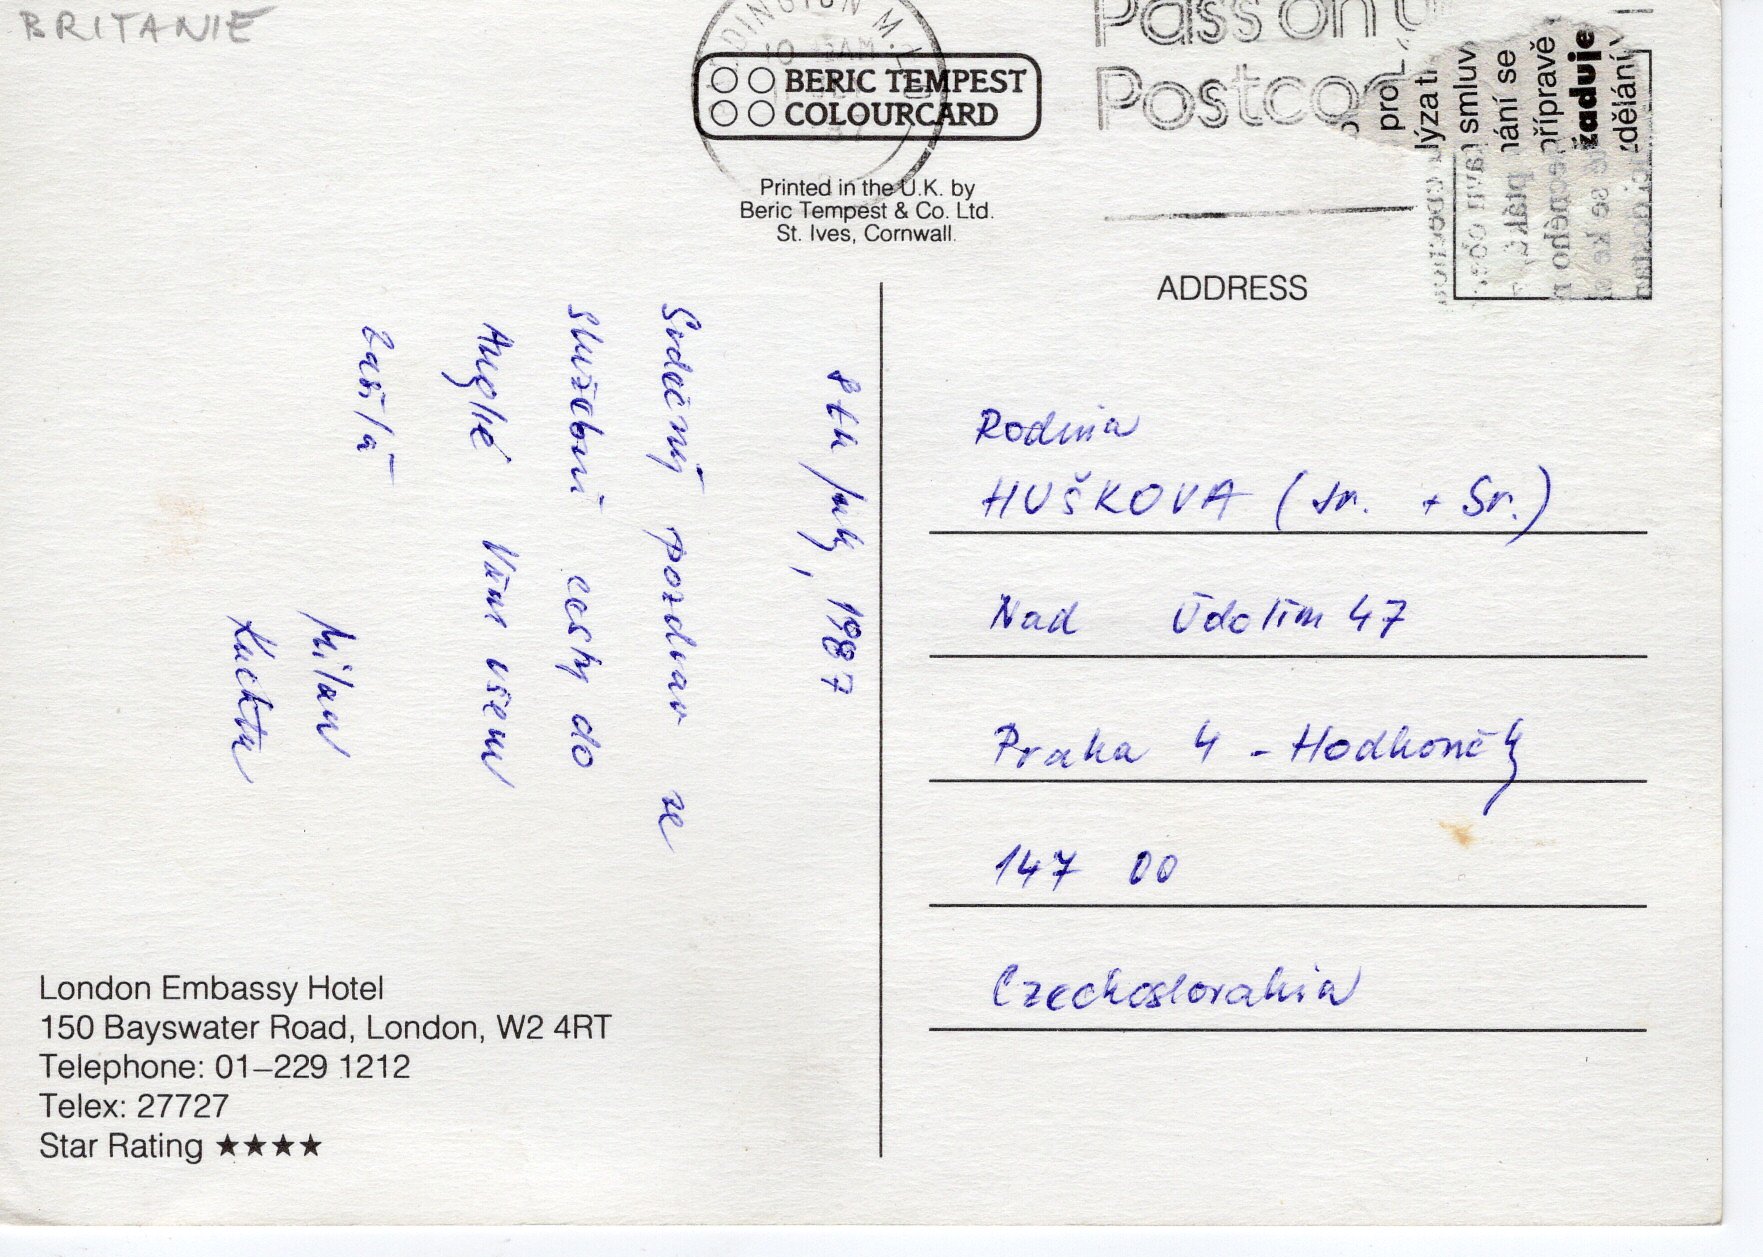 BRITANIE
DINGTON M.L.O
10 AM
Pass on
Postcod
BERIC TEMPEST
COLOURCARD
Printed in the U.K. by
Beric Tempest & Co. Ltd.
St. Ives, Cornwall.
smluv
ání se
přípravě
žaduje
ADDRESS
8th July, 1987
Srdečný pozdrav ze
služební cesty do
Anglie Vám všem
zasílá
Milan
Kuchta
Rodina
HUŠKOVA (Jr. + Sr.)
Nad Údolím 47
Praha 4 - Hodkovičky
147 00
Czechoslovakia
London Embassy Hotel
150 Bayswater Road, London, W2 4RT
Telephone: 01–229 1212
Telex: 27727
Star Rating ★★★★